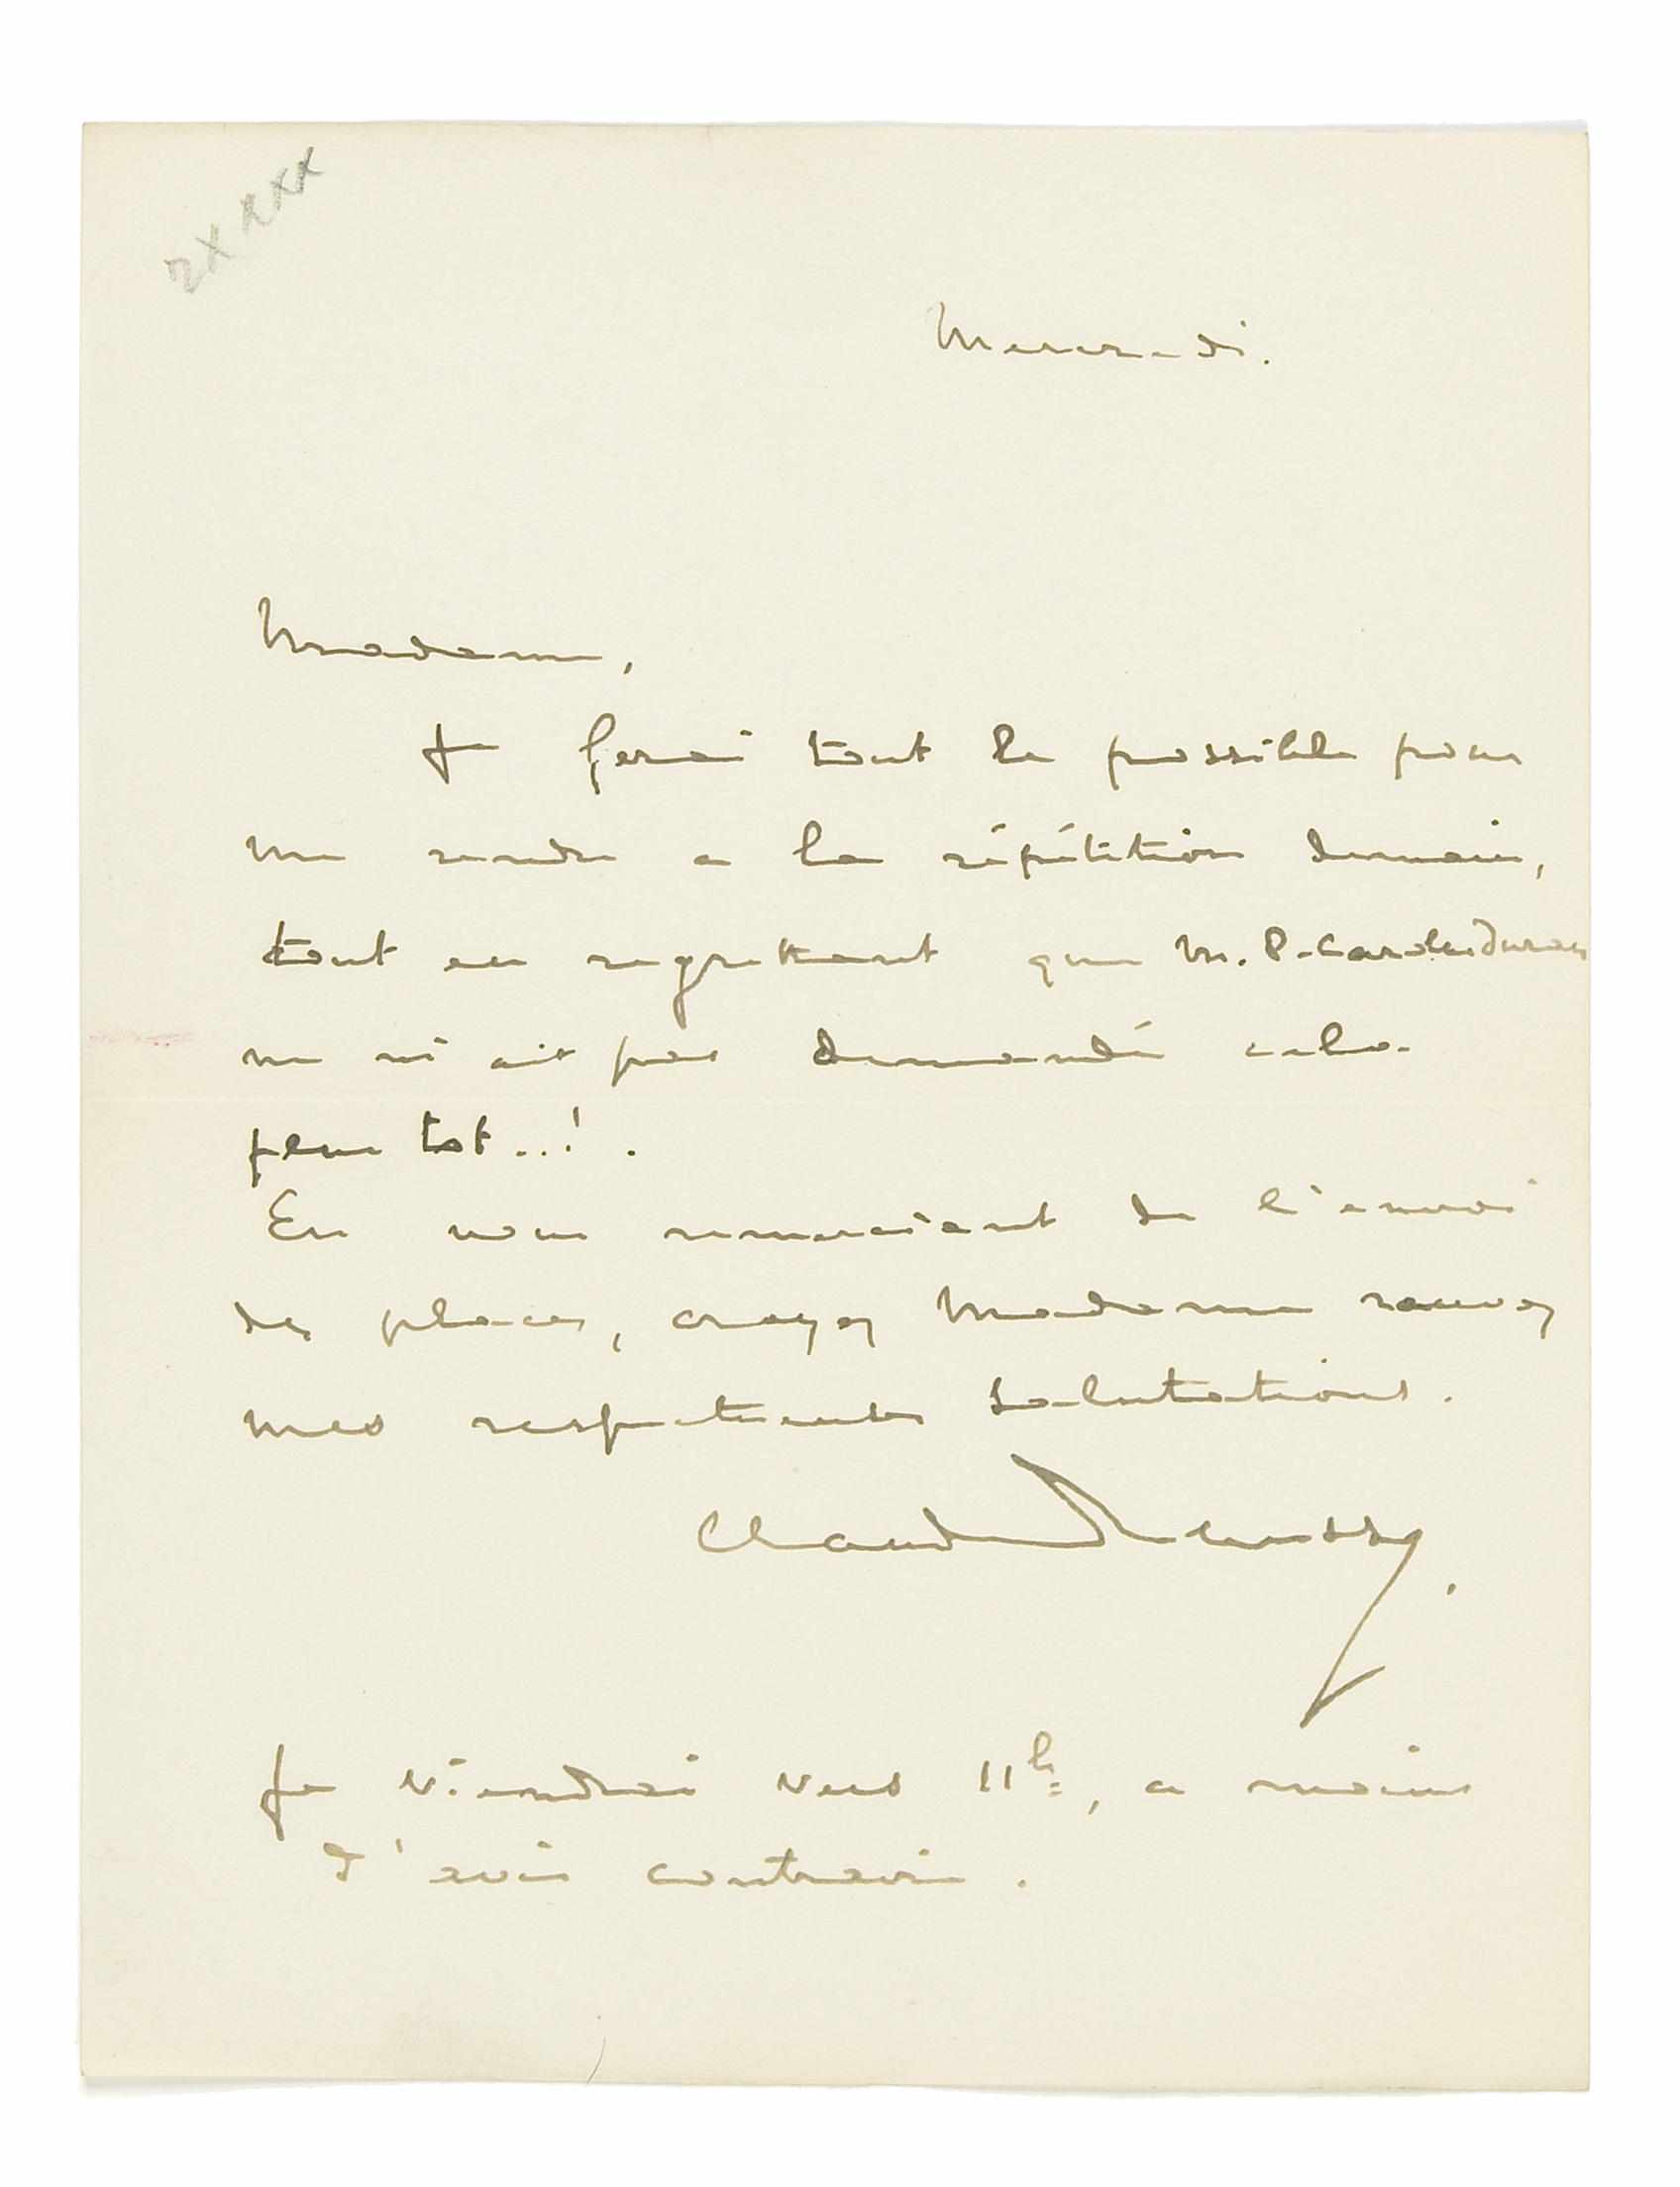 Mercredi.
Madame,
Je ferai tout le possible pour
me rendre a la répétition demain,
tout en regrettant que M. P. Carolus Duran
ne m'ait pas demandé cela
plus tot..!.
En vous remerciant de l'envoi
des places, croyez Madame recevez
mes respectueuses salutations.
Claude Debussy.
Je viendrai vers 11h, a moins
d'avis contraire.